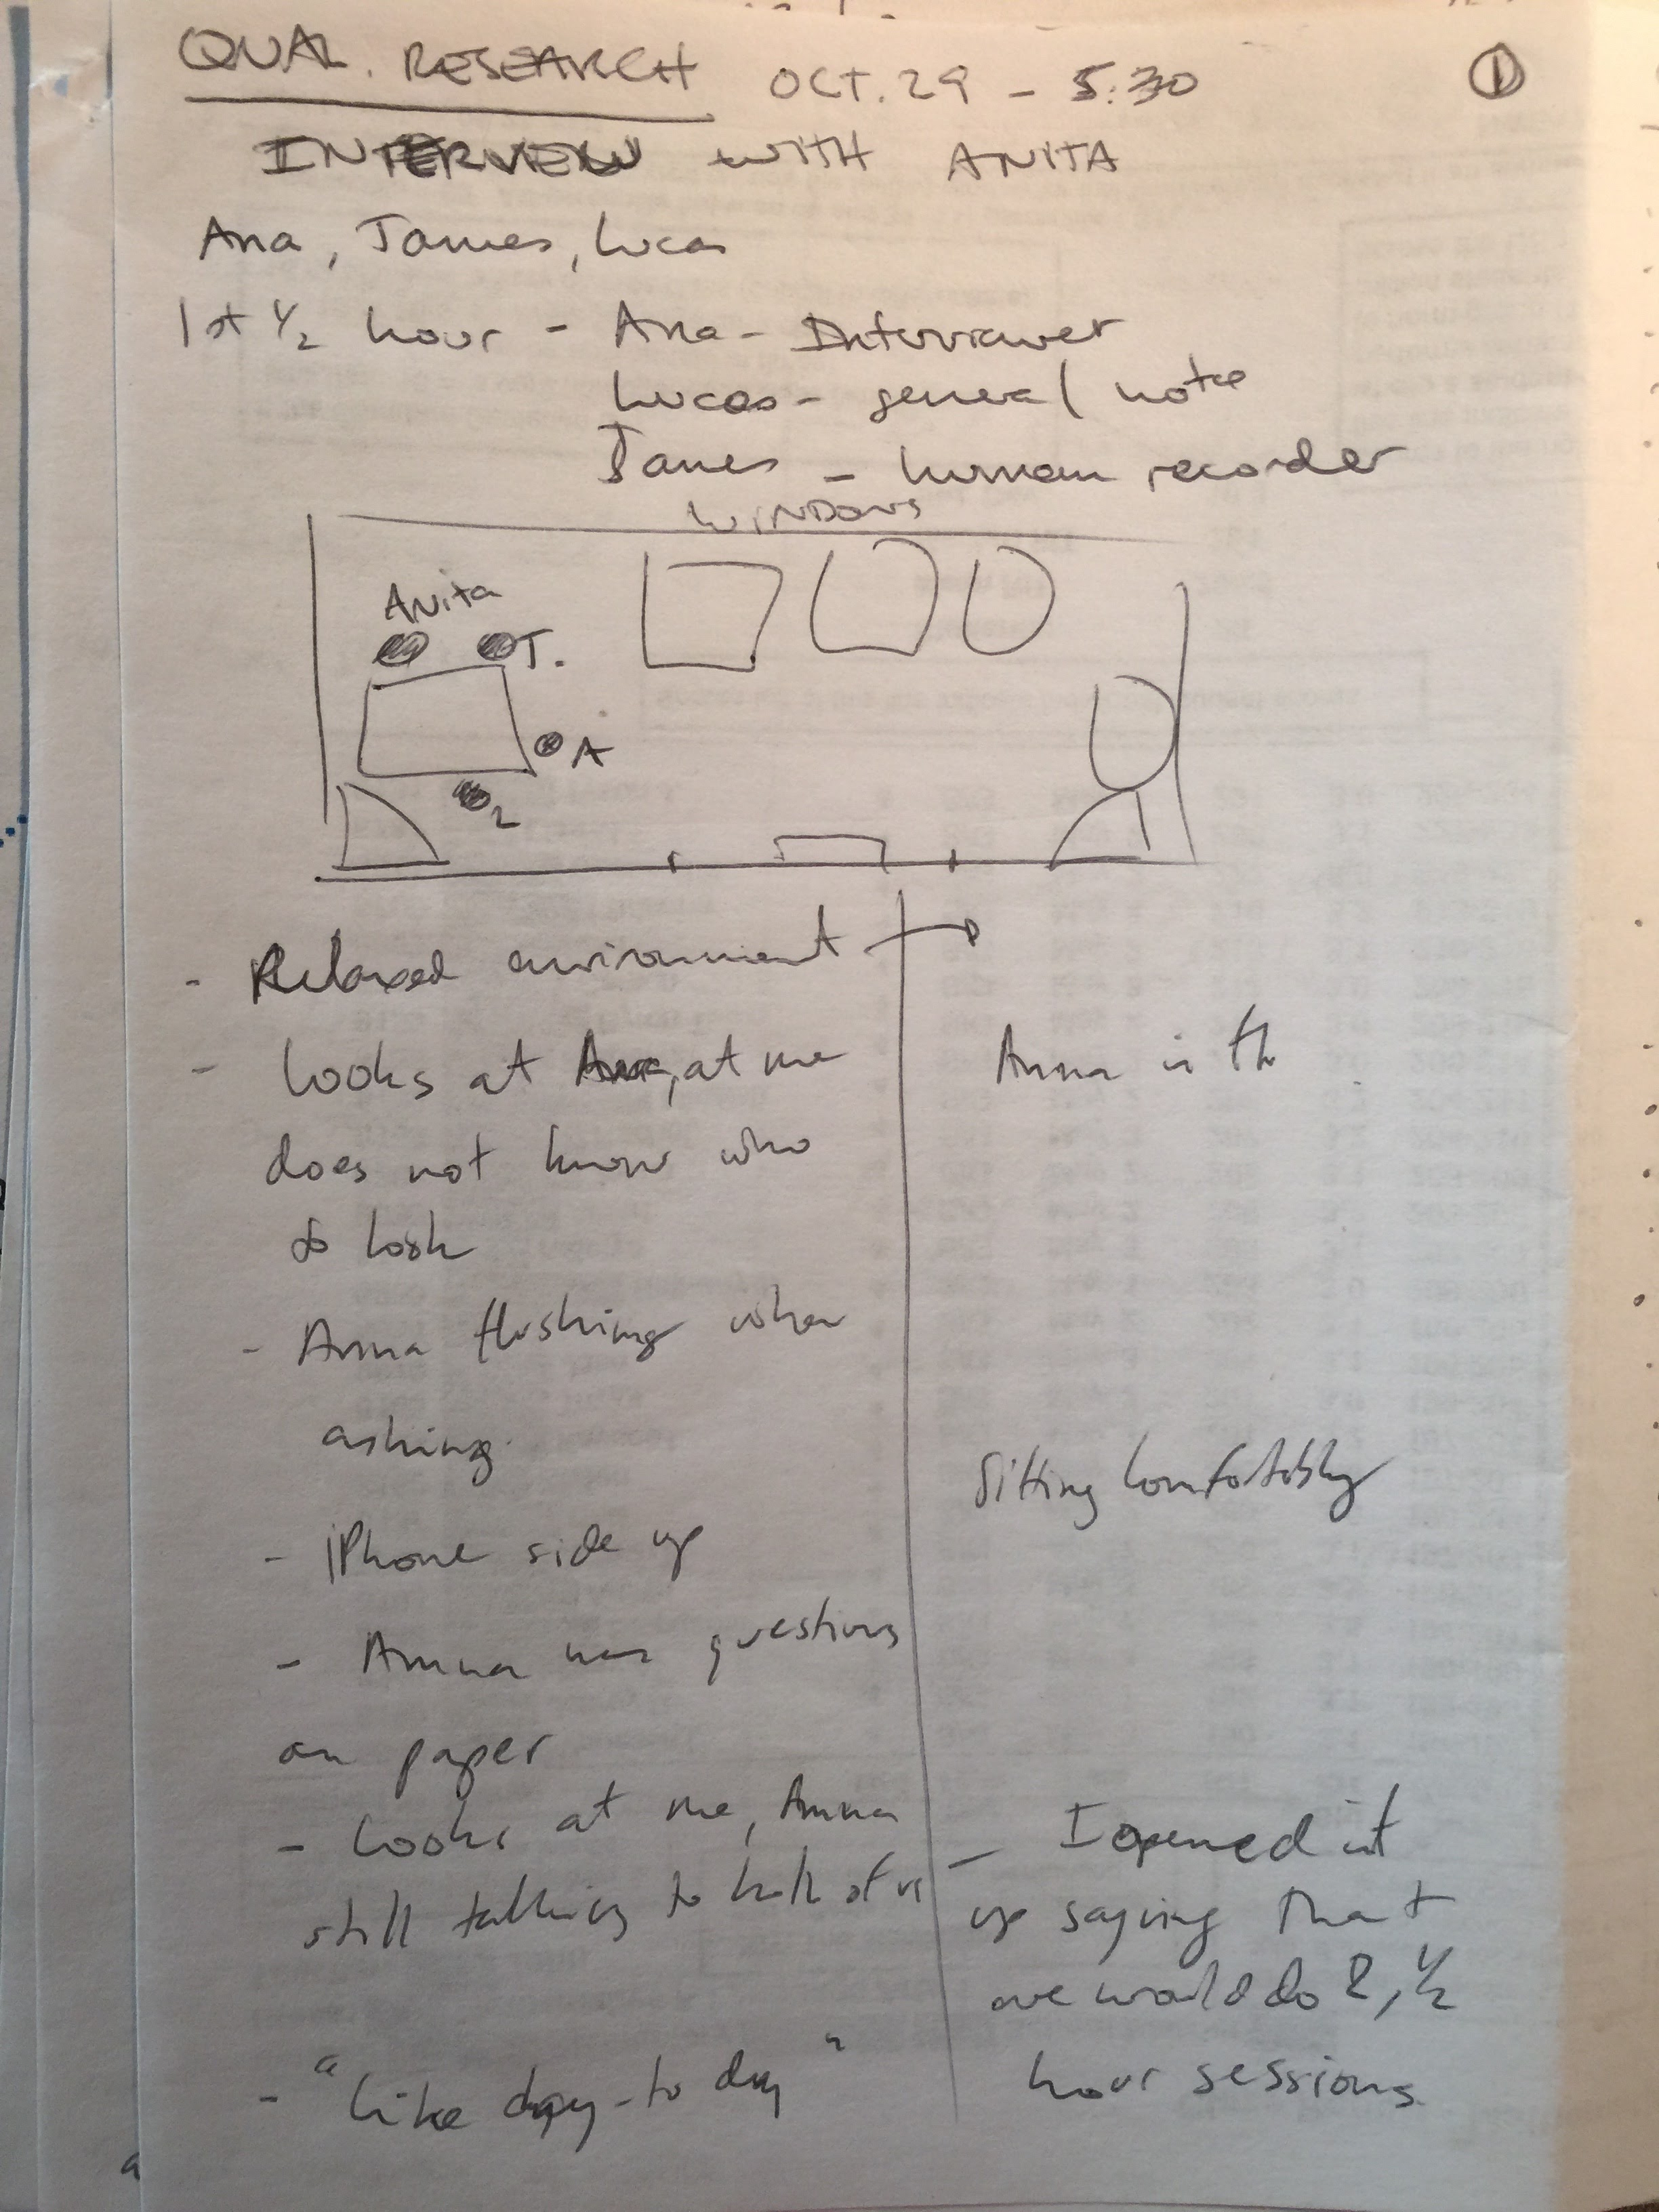 QUAL. RESEARCH OCT. 29 - 5:30 ①
INTERVIEW WITH ANITA
Ana, James, Lucas
1st ½ hour - Ana - Interviewer
Lucas - general note
James - human recorder
WINDOWS
Anita
J.
A
L
- Relaxed environment
- Looks at Ana, at me
does not know who
to look
- Anna flushing when
asking.
- iPhone side up
- Anna has questions
on paper
- Looks at me, Anna
still talking to both of us
- "like day-to day"
Anna is th
Sitting comfortably
- I opened it
up saying that
we would do 2, ½
hour sessions.